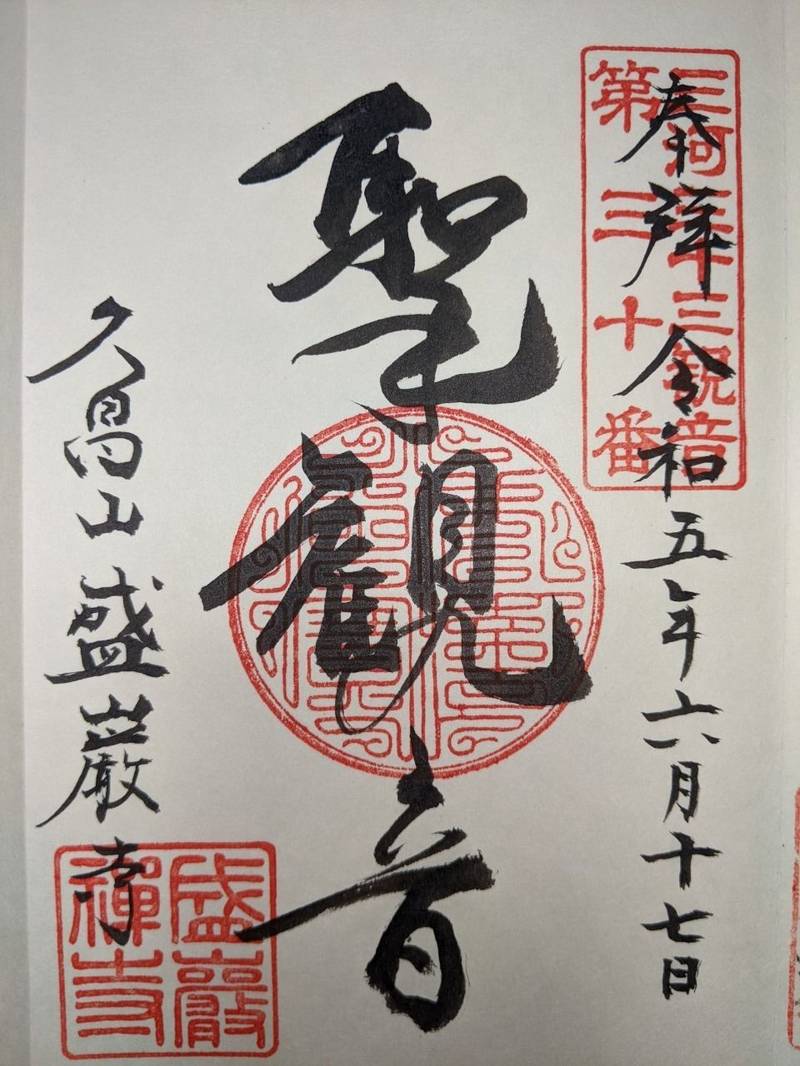 奉拝 令和五年六月十七日
三河三十三観音
第三十番
聖観音
久昌山 盛巖寺
盛巖
禅寺